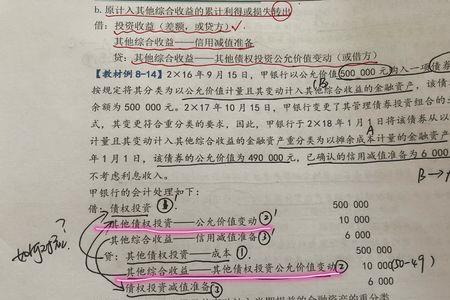 b. 原计入其他综合收益的累计利得或损失转出
借：投资收益（差额，或贷方）
其他综合收益——信用减值准备
贷：其他综合收益——其他债权投资公允价值变动（或借方）
【教材例 8-14】2×16 年 9 月 15 日，甲银行以公允价值 500 000 元购入一项债券
按规定将其分类为以公允价值计量且其变动计入其他综合收益的金融资产，该债
余额为 500 000 元。2×17 年 10 月 15 日，甲银行变更了其管理债券投资组合的
式，其变更符合重分类的要求，因此，甲银行于 2×18 年 1 月 1 日将该债券从以
计量且其变动计入其他综合收益的金融资产重分类为以摊余成本计量的金融资产
年 1 月 1 日，该债券的公允价值为 490 000 元，已确认的信用减值准备为 6 000
不考虑利息收入。
甲银行的会计处理如下：
借：债权投资 ① 500 000
其他债权投资——公允价值变动 ② 10 000
其他综合收益——信用减值准备 ③ 6 000
贷：其他债权投资——成本 ① 500 000
其他综合收益——其他债权投资公允价值变动 ② 10 000 (50-49)
债权投资减值准备 ③ 6 000
B
A
B→